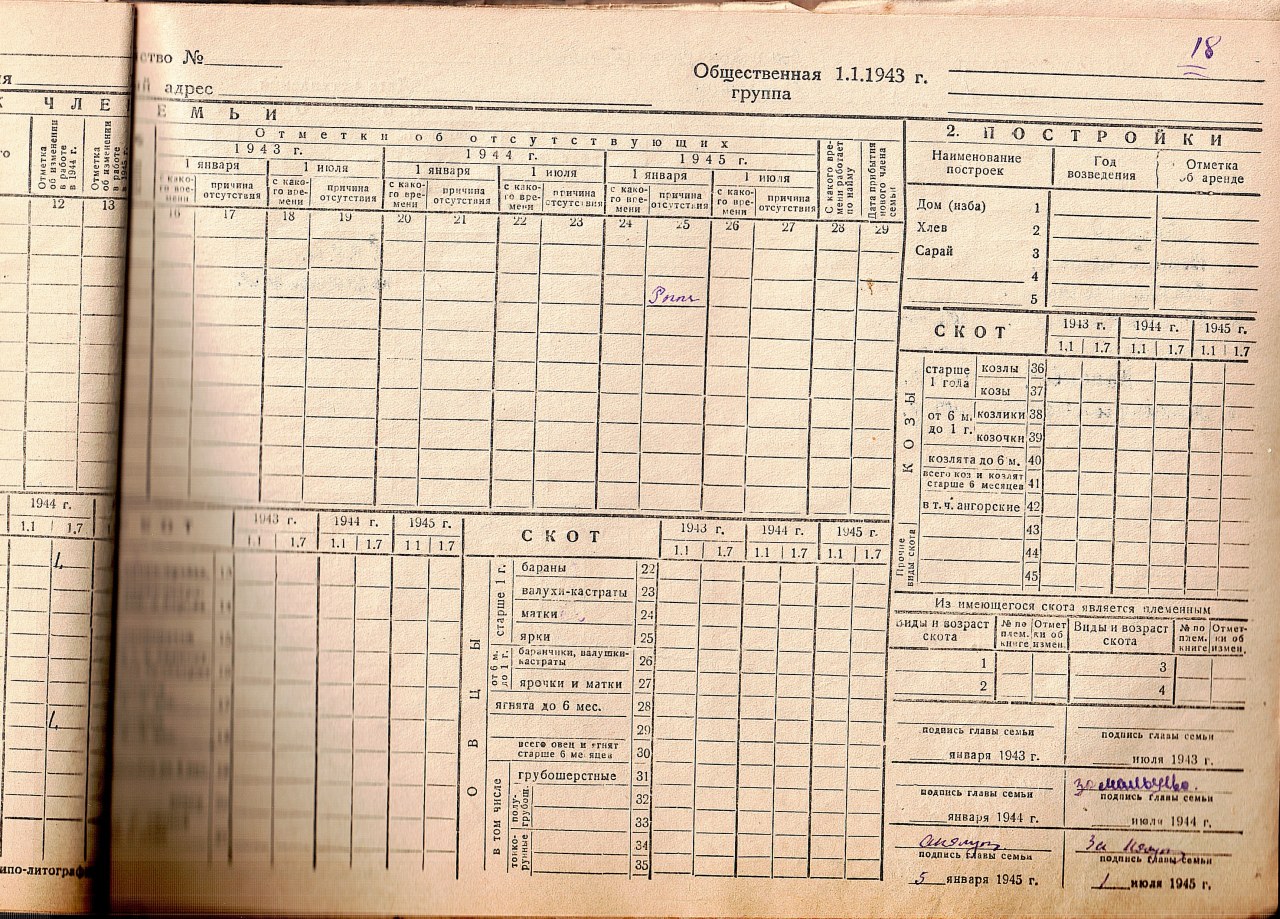 18
ство №
Общественная 1.1.1943 г.
группа
адрес
К ЧЛЕ
ЕМЬИ
Отметки об отсутствующих
1943 г. 1944 г. 1945 г.
1 января 1 июля 1 января 1 июля 1 января 1 июля
Отметка об изменении в работе в 1944 г.
Отметка об изменении в работе в 1945 г.
с како-го вре-мени причина отсутствия с како-го вре-мени причина отсутствия с како-го вре-мени причина отсутствия с како-го вре-мени причина отсутствия с како-го вре-мени причина отсутствия с како-го вре-мени причина отсутствия
С какого вре-мени работает по найму
Дата прибытия нового члена семьи
12 13 16 17 18 19 20 21 22 23 24 25 26 27 28 29
2. ПОСТРОЙКИ
Наименование построек Год возведения Отметка об аренде
Дом (изба) 1
Хлев 2
Сарай 3
4
5
СКОТ 1943 г. 1944 г. 1945 г.
1.1 1.7 1.1 1.7 1.1 1.7
КОЗЫ
старше 1 года козлы 36
козы 37
от 6 м. до 1 г. козлики 38
козочки 39
козлята до 6 м. 40
всего коз и козлят старше 6 месяцев 41
в т. ч. ангорские 42
Прочие виды скота 43
44
45
Из имеющегося скота является племенным
Виды и возраст скота № по плем. книге Отмет ки об измен. Виды и возраст скота № по плем. книге Отмет-ки об измен.
1 3
2 4
1944 г.
1.1 1.7
КОТ 1943 г. 1944 г. 1945 г.
1.1 1.7 1.1 1.7 1 1 1.7
СКОТ 1943 г. 1944 г. 1945 г.
1.1 1.7 1.1 1.7 1.1 1.7
ОВЦЫ
старше 1 г. бараны 22
валухи-кастраты 23
матки 24
ярки 25
от 6 м. до 1 г. баранчики, валушки-кастраты 26
ярочки и матки 27
ягнята до 6 мес. 28
29
всего овец и ягнят старше 6 месяцев 30
в том числе грубошерстные 31
полу-грубош. 32
33
тонко-рунные 34
35
подпись главы семьи подпись главы семьи
января 1943 г. июля 1943 г.
подпись главы семьи подпись главы семьи
января 1944 г. июля 1944 г.
подпись главы семьи подпись главы семьи
5 января 1945 г. 1 июля 1945 г.
ипо-литограф